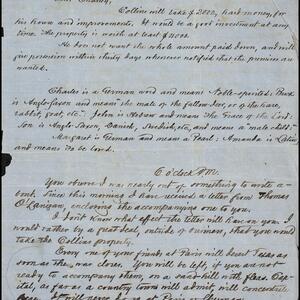 Collins will take $2000, hard money, for
his house and improvements. It would be a good investment at any
time. The property is worth at least $2500.
He does not want the whole amount paid down, and will
give possession within thirty days whenever notified that its premises are
wanted.
Charles is a German word and means Noble-spirited; Buck
is Anglo-Saxon and means the male of the fallow deer, or of the hare,
rabbit, goat, etc. John is Hebrew and means the Grace of the Lord:
Son is Anglo-Saxon, Danish, Swedish, etc, and means a male child:
Margaret is German and means a Pearl: Amanda is Latin
and means to be loved.
6 o'clock P.M.
You observe I was nearly out of something to write a-
bout. Since this morning I have received a letter from Thomas
O'Lanigan, enclosing the accompanying one to you.
I don't know what effect the letter will have on you. I
would rather by a great deal, outside of business, that you would
take the Collins property.
Every one of your friends at Paris will desert Texas as
soon as they can clear. You will be left, if you are not
ready to accompany them, on a sand-hill with fleas. Cap-
ital, as far as a country town will admit, will concentrate